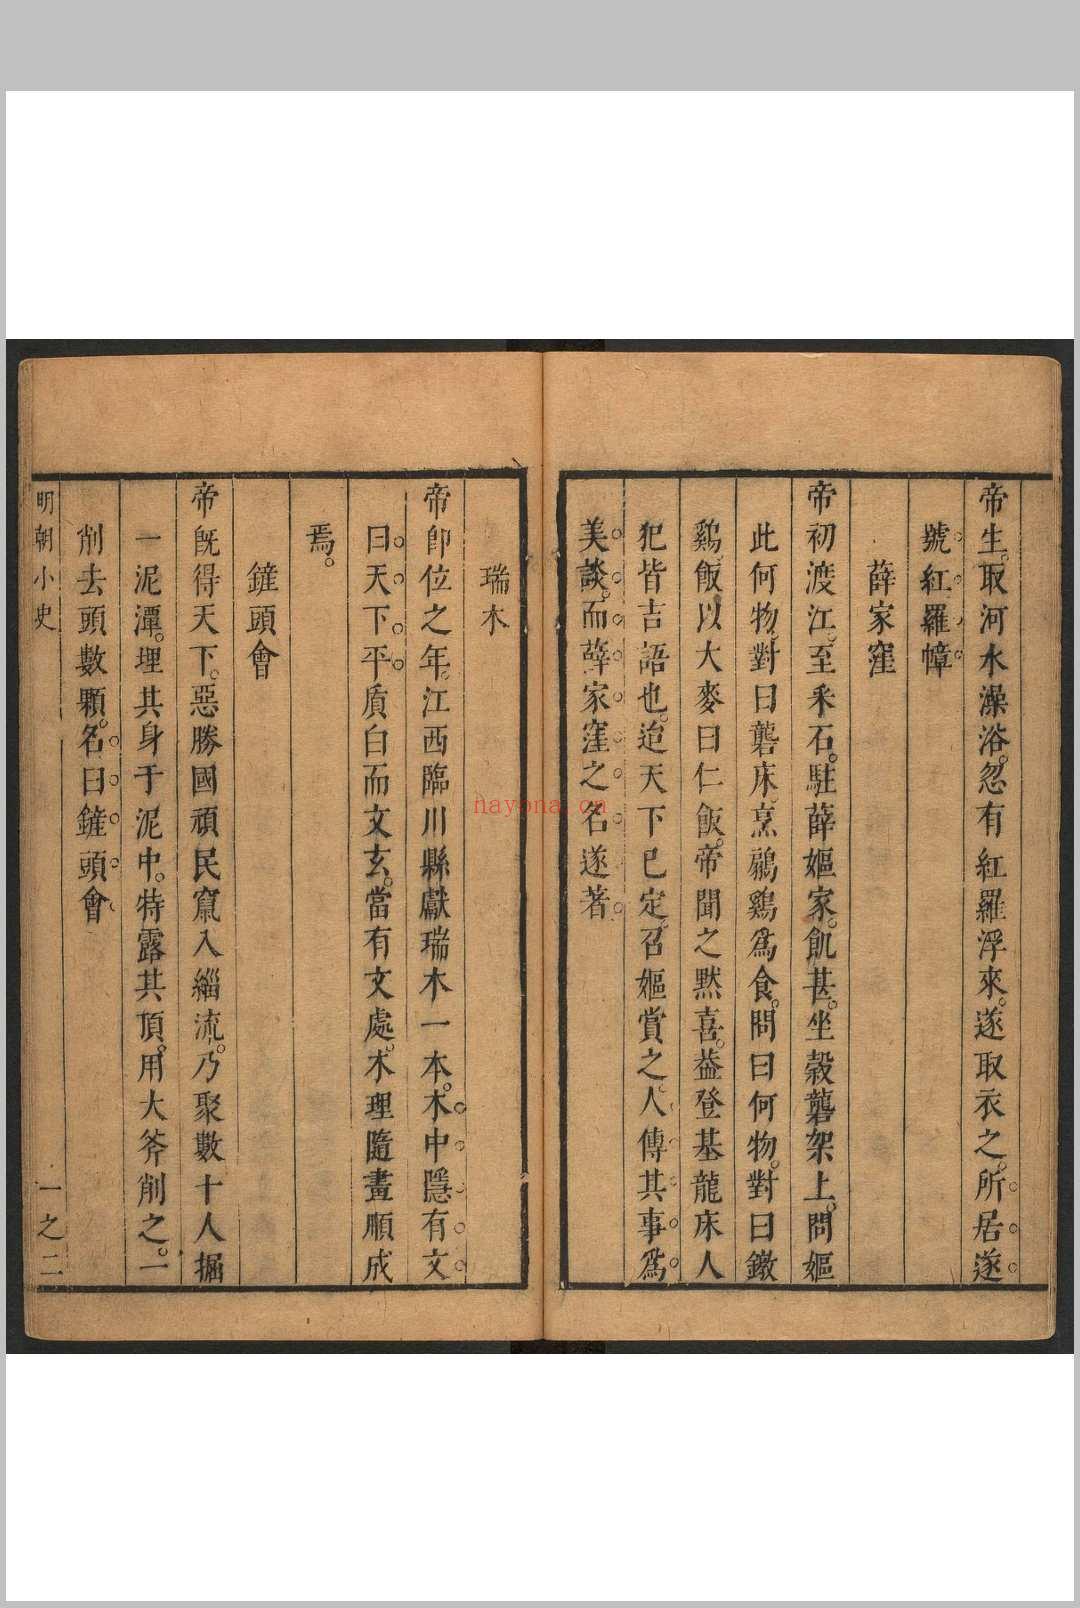 帝生。取河水澡浴。忽有紅羅浮來。遂取衣之。所居遂
號紅羅幛
薛家窪
帝初渡江。至釆石。駐薛嫗家。飢甚。坐榖礱架上。問嫗
此何物。對曰礱床。烹鵝鷄爲食。問曰何物。對曰鐓
鷄。飯以大麥曰仁飯。帝聞之黙喜。葢登基龍床人
犯皆吉語也。迨天下已定。召嫗賞之。人傳其事爲
美談。而薛家窪之名遂著
瑞木
帝卽位之年。江西臨川縣獻瑞木一本。木中隱有文
曰天下平。質白而文玄。當有文處。木理隨畫順成
焉。
鏟頭會
帝旣得天下。惡勝國頑民竄入緇流。乃聚數十人掘
一泥潭。埋其身于泥中。特露其頂。用大斧削之。一
削去頭數顆。名曰鏟頭會
明朝小史
一之二
nayona.cn